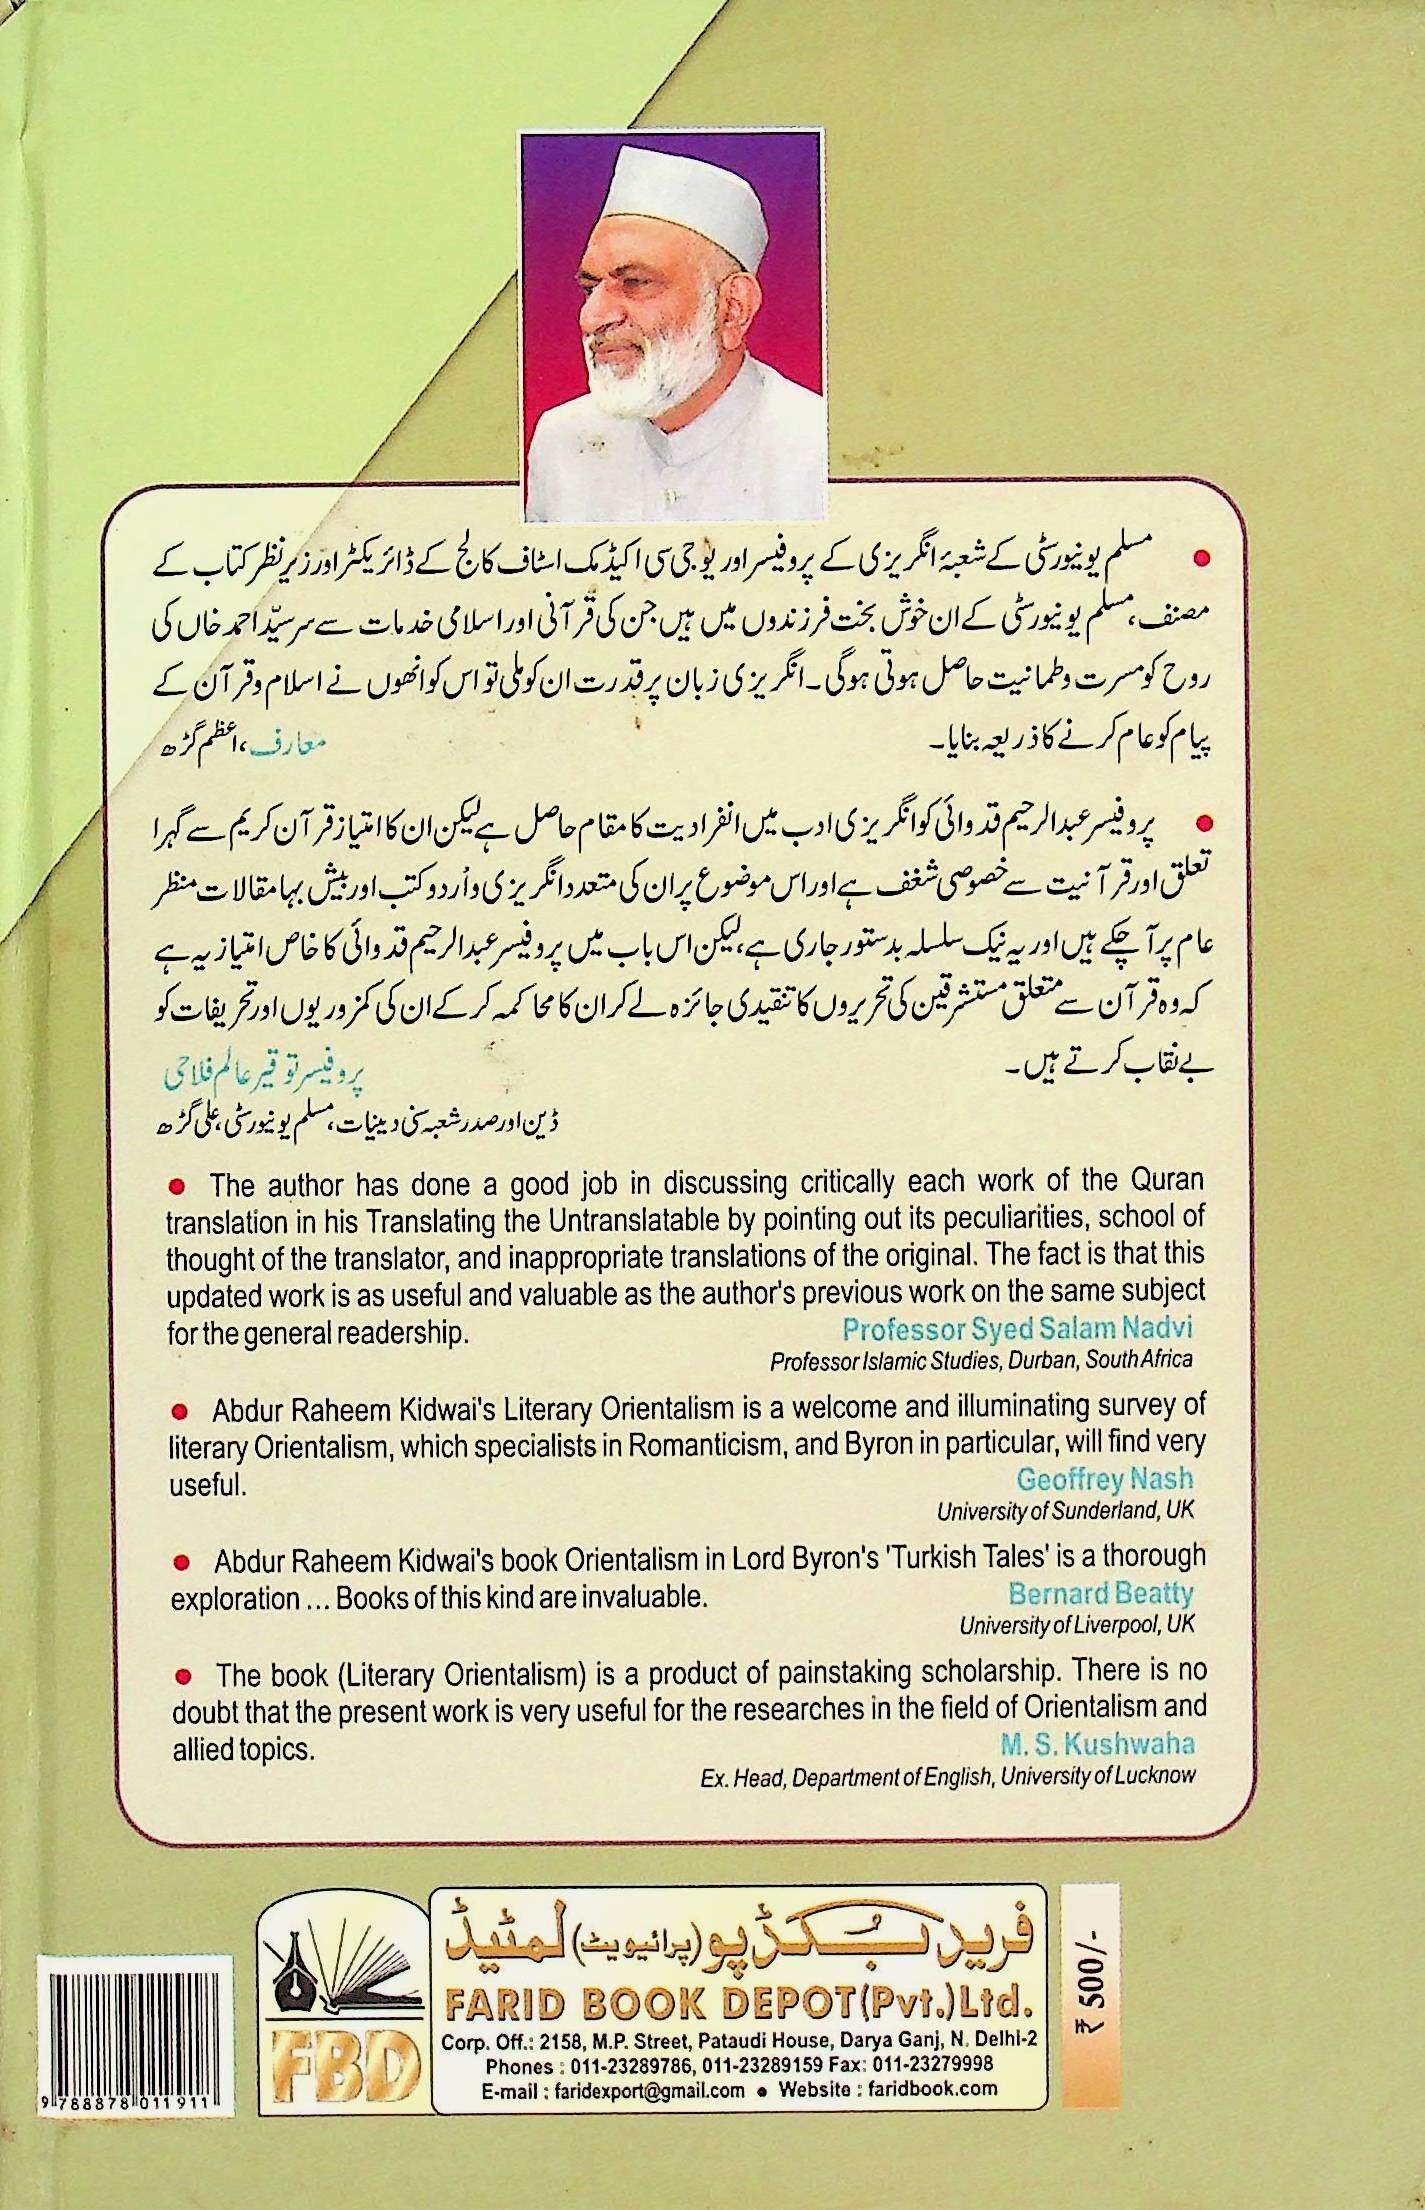 مسلم یونیورسٹی کے شعبۂ انگریزی کے پروفیسر اور یو جی سی اکیڈمک اسٹاف کالج کے ڈائریکٹر اور زیر نظر کتاب کے
مصنف، مسلم یونیورسٹی کے ان خوش بخت فرزندوں میں ہیں جن کی قرآنی اور اسلامی خدمات سے سرسیّد احمد خاں کی
روح کو مسرت و طمانیت حاصل ہوتی ہوگی۔ انگریزی زبان پر قدرت ان کو ملی تو اس کو انھوں نے اسلام و قرآن کے
پیام کو عام کرنے کا ذریعہ بنایا۔
معارف، اعظم گڑھ
پروفیسر عبدالرحیم قدوائی کو انگریزی ادب میں انفرادیت کا مقام حاصل ہے لیکن ان کا امتیاز قرآن کریم سے گہرا
تعلق اور قرآنیت سے خصوصی شغف ہے اور اس موضوع پر ان کی متعدد انگریزی و اُردو کتب اور بیش بہا مقالات منظر
عام پر آچکے ہیں اور یہ نیک سلسلہ بدستور جاری ہے، لیکن اس باب میں پروفیسر عبدالرحیم قدوائی کا خاص امتیاز یہ ہے
کہ وہ قرآن سے متعلق مستشرقین کی تحریروں کا تنقیدی جائزہ لے کر ان کا محاکمہ کرکے ان کی کمزوریوں اور تحریفات کو
بے نقاب کرتے ہیں۔
پروفیسر توقیر عالم فلاحی
ڈین اور صدر شعبہ سنی دینیات، مسلم یونیورسٹی، علی گڑھ
• The author has done a good job in discussing critically each work of the Quran
translation in his Translating the Untranslatable by pointing out its peculiarities, school of
thought of the translator, and inappropriate translations of the original. The fact is that this
updated work is as useful and valuable as the author's previous work on the same subject
for the general readership. Professor Syed Salam Nadvi
Professor Islamic Studies, Durban, South Africa
• Abdur Raheem Kidwai's Literary Orientalism is a welcome and illuminating survey of
literary Orientalism, which specialists in Romanticism, and Byron in particular, will find very
useful. Geoffrey Nash
University of Sunderland, UK
• Abdur Raheem Kidwai's book Orientalism in Lord Byron's 'Turkish Tales' is a thorough
exploration ... Books of this kind are invaluable. Bernard Beatty
University of Liverpool, UK
• The book (Literary Orientalism) is a product of painstaking scholarship. There is no
doubt that the present work is very useful for the researches in the field of Orientalism and
allied topics. M. S. Kushwaha
Ex. Head, Department of English, University of Lucknow
فرید بکڈپو (پرائیویٹ) لمٹیڈ
FARID BOOK DEPOT (Pvt.) Ltd.
Corp. Off.: 2158, M.P. Street, Pataudi House, Darya Ganj, N. Delhi-2
Phones : 011-23289786, 011-23289159 Fax: 011-23279998
E-mail : faridexport@gmail.com • Website : faridbook.com
FBD
₹ 500/-
9 788878 011911